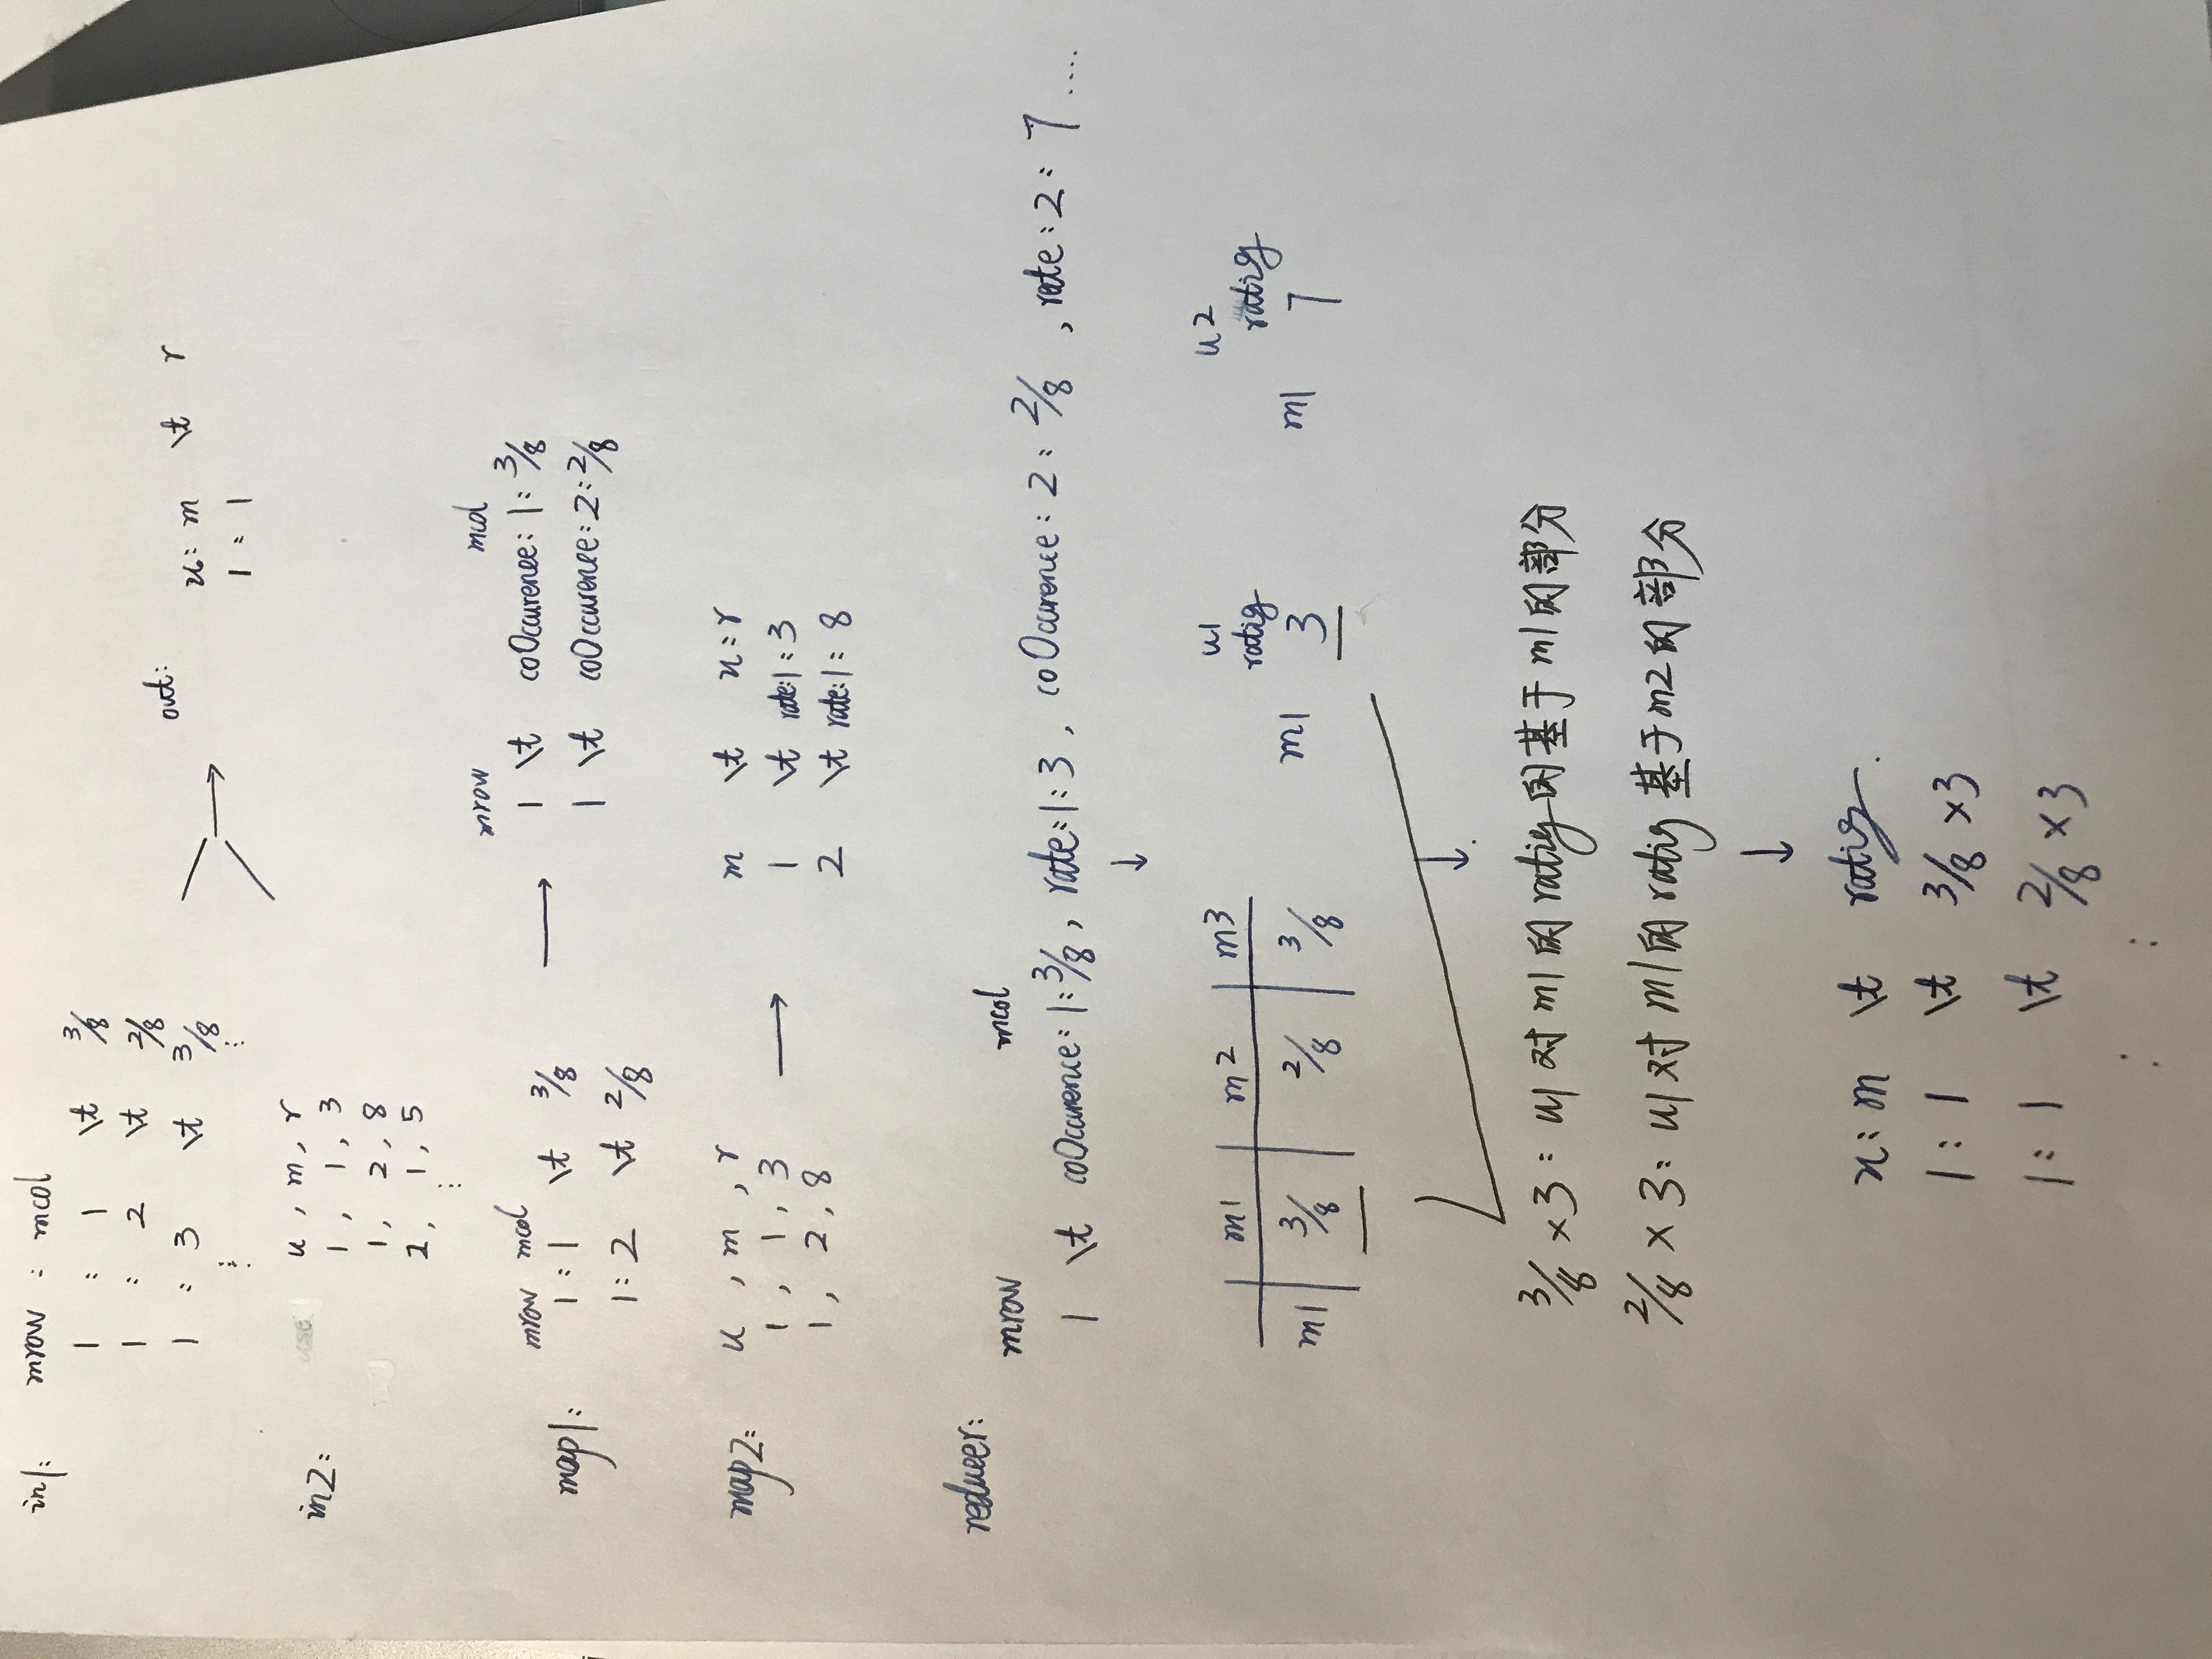 in1: mrow : mcol
1 : 1 \t 3/8
1 : 2 \t 2/8
1 : 3 \t 3/8
⋮ ⋮
out: u : m \t r
1 : 1
in2: u , m , r
1 , 1 , 3
1 , 2 , 8
2 , 1 , 5
⋮
map1: mrow mcol
1 : 1 \t 3/8
1 : 2 \t 2/8
mrow mcol
1 \t coOccurence : 1 : 3/8
1 \t coOccurence : 2 : 2/8
map2: u , m , r
1 , 1 , 3
1 , 2 , 8
m \t u : r
1 \t rate:1 : 3
2 \t rate:1 : 8
reducer:
mrow mcol
1 \t coOccurence : 1 : 3/8 , rate : 1 : 3 , coOccurence : 2 : 2/8 , rate : 2 : 7 ....
m1 m2 m3
m1 3/8 2/8 3/8
u1
ratig
m1 3
u2
ratig
m1 7
3/8 × 3 : u1 对 m1 的 ratig 的基于 m1 的部分
2/8 × 3 : u1 对 m1 的 ratig 基于 m2 的部分
u : m \t ratig .
1 : 1 \t 3/8 × 3
1 : 1 \t 2/8 × 3
: :